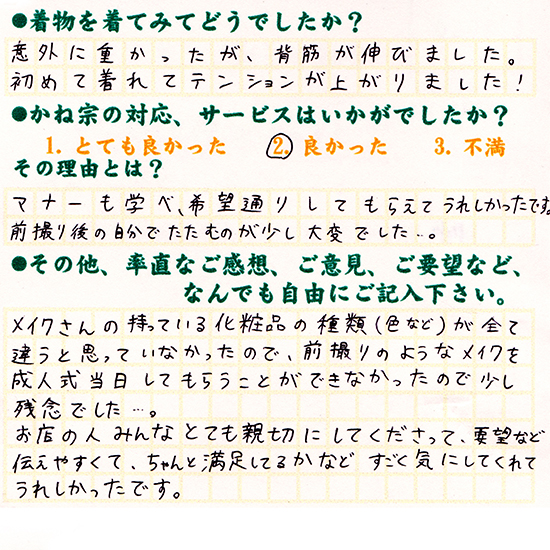 ●着物を着てみてどうでしたか？
意外に重かったが、背筋が伸びました。
初めて着れてテンションが上がりました！
●かね宗の対応、サービスはいかがでしたか？
1. とても良かった　2. 良かった　3. 不満
その理由とは？
マナーも学べ、希望通りしてもらえてうれしかったです。
前撮り後の自分でたたむのが少し大変でした…。
●その他、率直なご感想、ご意見、ご要望など、
なんでも自由にご記入下さい。
メイクさんの持っている化粧品の種類(色など)が全て
違うと思っていなかったので、前撮りのようなメイクを
成人式当日してもらうことができなかったので少し
残念でした…。
お店の人みんなとても親切にしてくださって、要望など
伝えやすくて、ちゃんと満足してるかなどすごく気にしてくれて
うれしかったです。